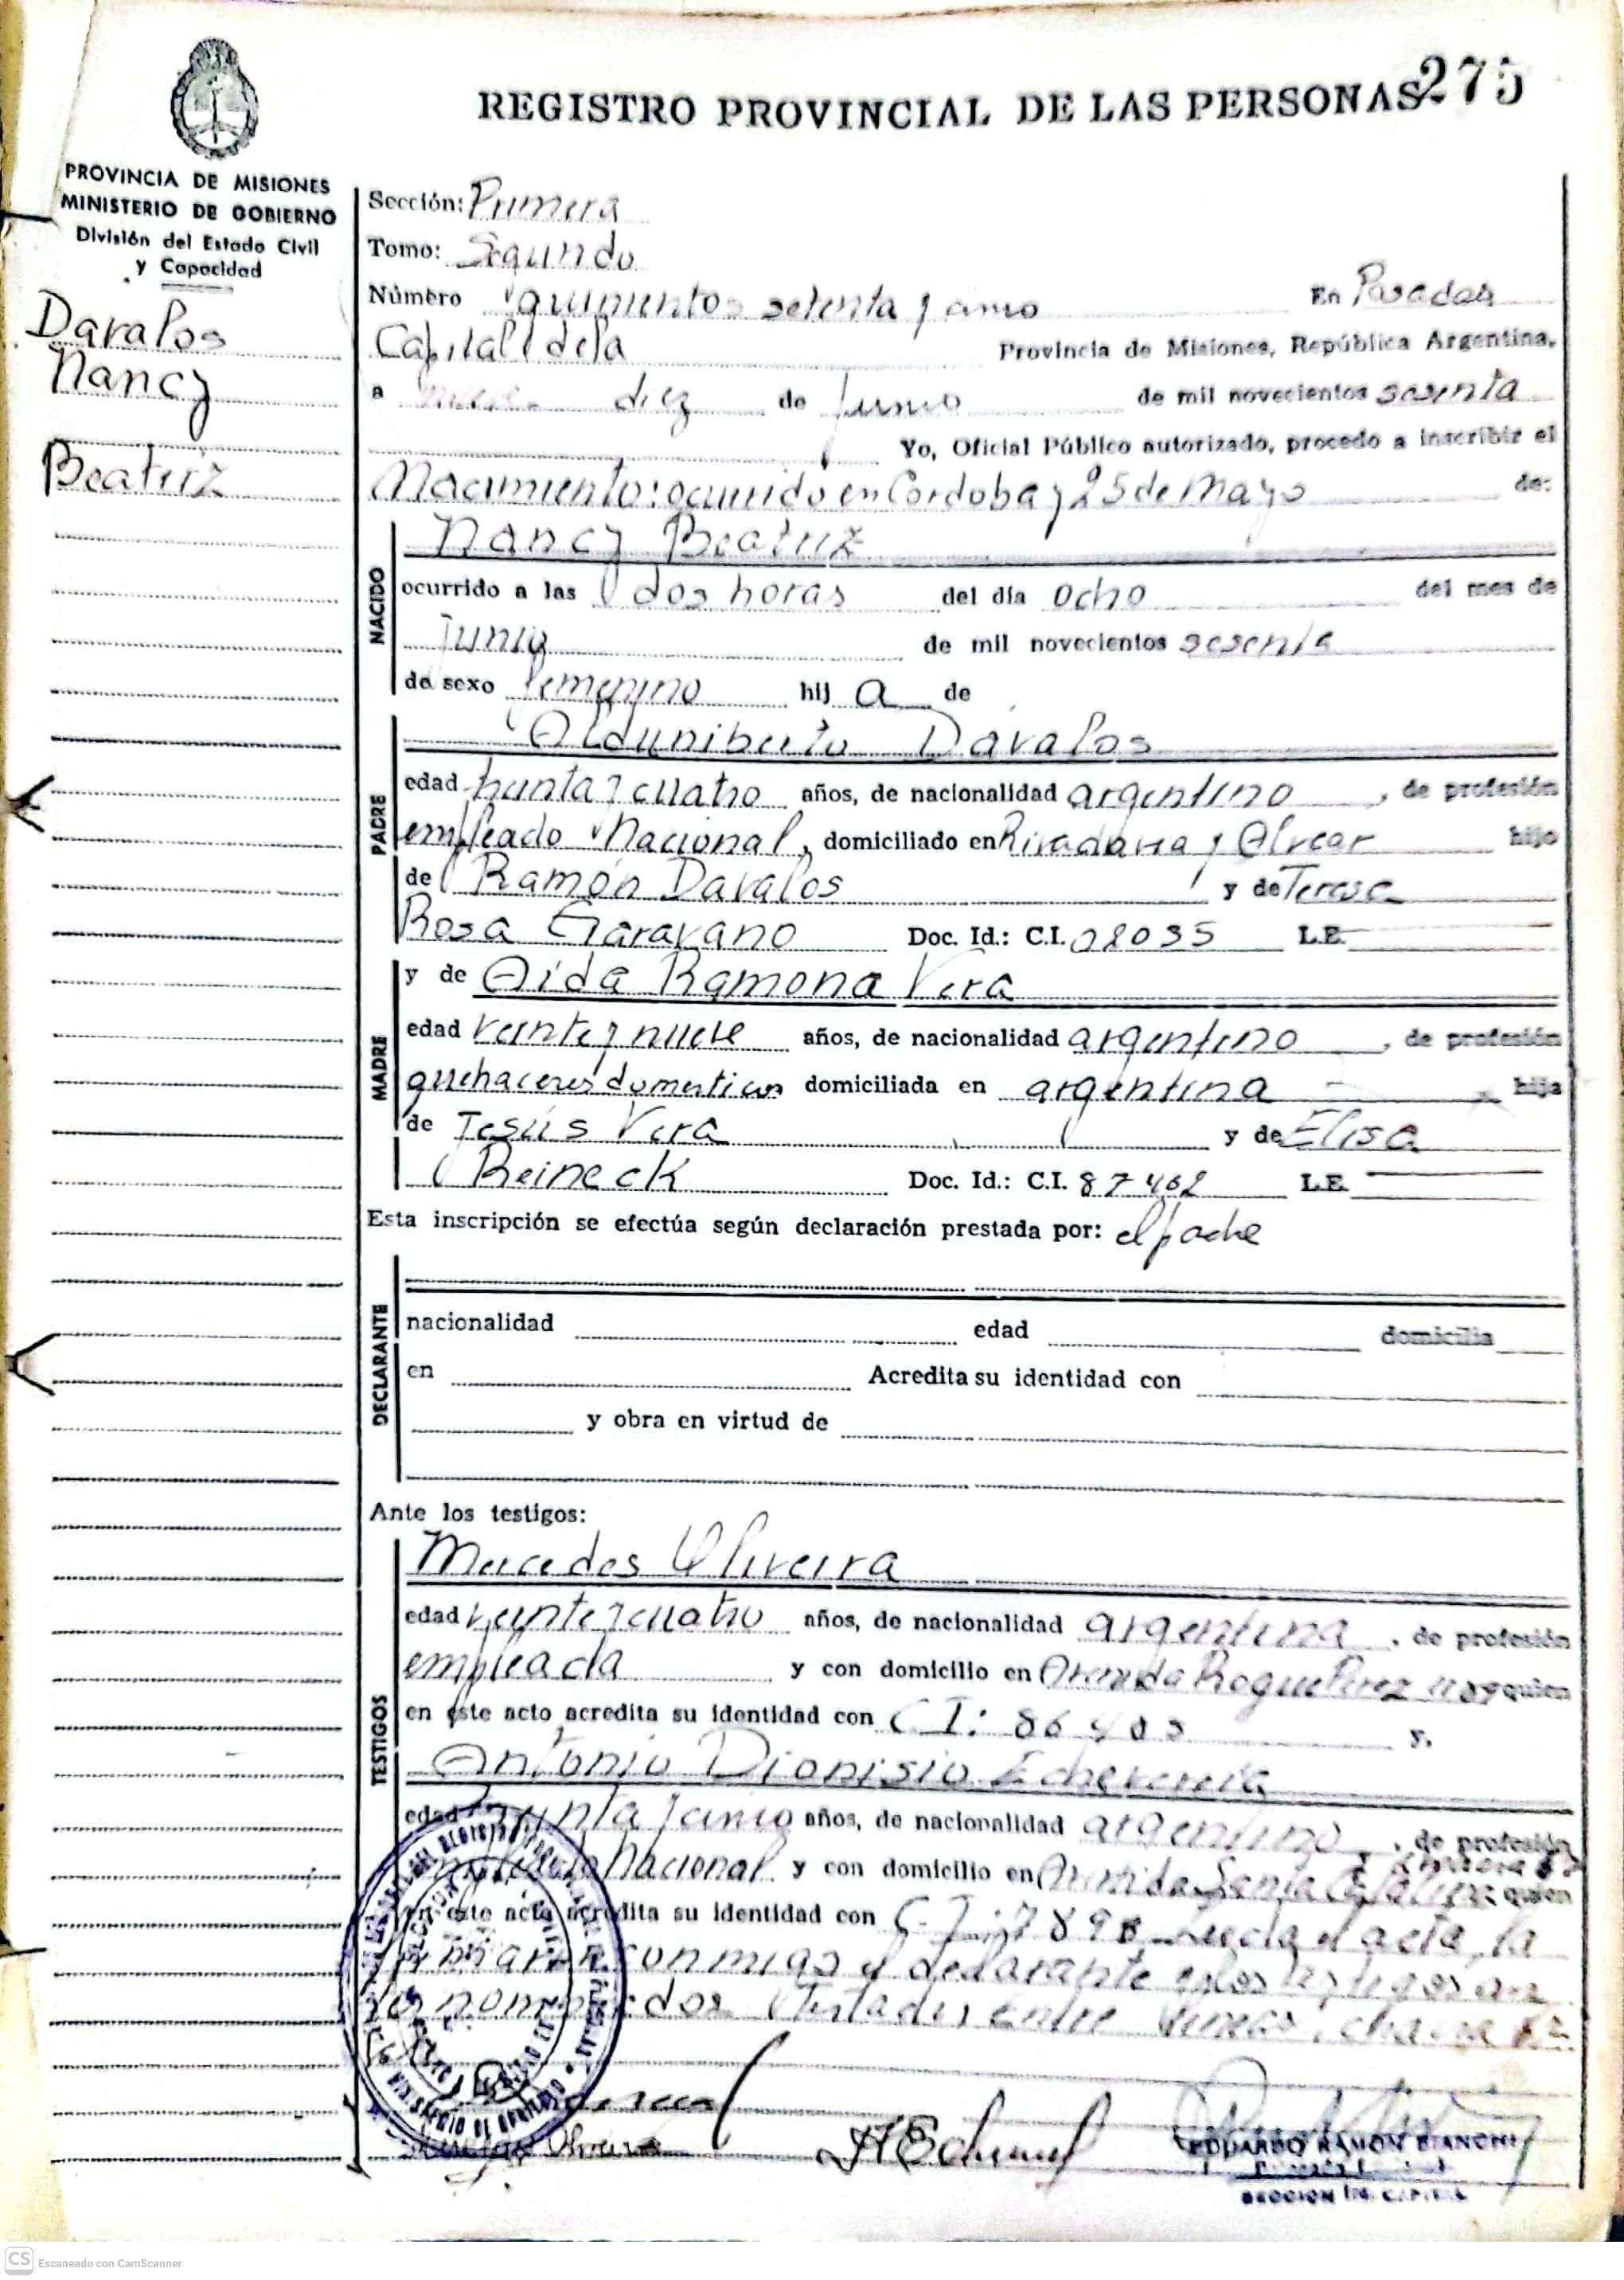 REGISTRO PROVINCIAL DE LAS PERSONAS 275
PROVINCIA DE MISIONES
MINISTERIO DE GOBIERNO
División del Estado Civil
y Capacidad
Davalos
Nancy
Beatriz
Sección: Primera
Tomo: Segundo
Número quinientos setenta y cinco En Posadas
Capital de la Provincia de Misiones, República Argentina,
a diez de Junio de mil novecientos sesenta
Yo, Oficial Público autorizado, procedo a inscribir el
Nacimiento: ocurrido en Cordoba y 25 de Mayo de:
NACIDO
Nancy Beatriz
ocurrido a las dos horas del día ocho del mes de
Junio de mil novecientos sesenta
de sexo femenino hij a de
PADRE
Davalos
edad treinta y cuatro años, de nacionalidad argentino, de profesión
empleado Nacional, domiciliado en Rivadavia y Alvear hijo
de Ramón Davalos y de Teresa
Rosa Garavano Doc. Id.: C.I. L.E.
MADRE
y de Aida Ramona Vera
edad veinte y nueve años, de nacionalidad argentino, de profesión
quehaceres domesticos domiciliada en argentina hija
de Jesús Vera y de Elisa
Reineck Doc. Id.: C.I. 87462 L.E.
Esta inscripción se efectúa según declaración prestada por: el padre
DECLARANTE
nacionalidad edad domicilia
en Acredita su identidad con
y obra en virtud de
Ante los testigos:
TESTIGOS
Mercedes Oliveira
edad veinte y cuatro años, de nacionalidad argentina, de profesión
empleada y con domicilio en Avenida Roque Perez quien
en este acto acredita su identidad con C I: y,
Antonio Dionisio Echeverria
edad años, de nacionalidad argentino, de profesión
Nacional y con domicilio en Avenida Santa Catalina quien
en este acto acredita su identidad con C.I. Leída el acta, la
firman conmigo el declarante y los testigos an
tes nombrados. Testado: Entre lineas:
EDUARDO RAMON BIANCHI
SECCION 1ra. CAPITAL
CS Escaneado con CamScanner